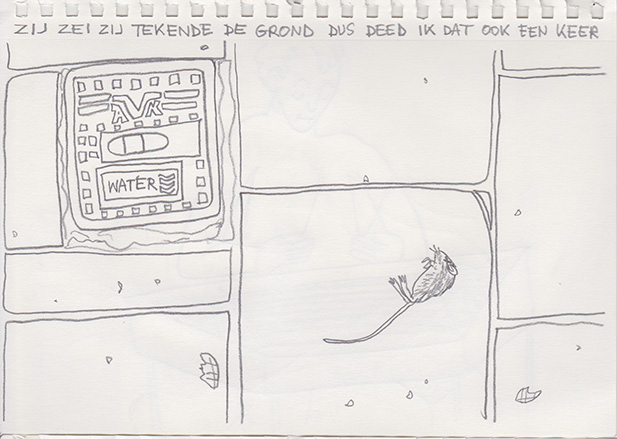 ZIJ ZEI ZIJ TEKENDE DE GROND DUS DEED IK DAT OOK EEN KEER
AVK
WATER